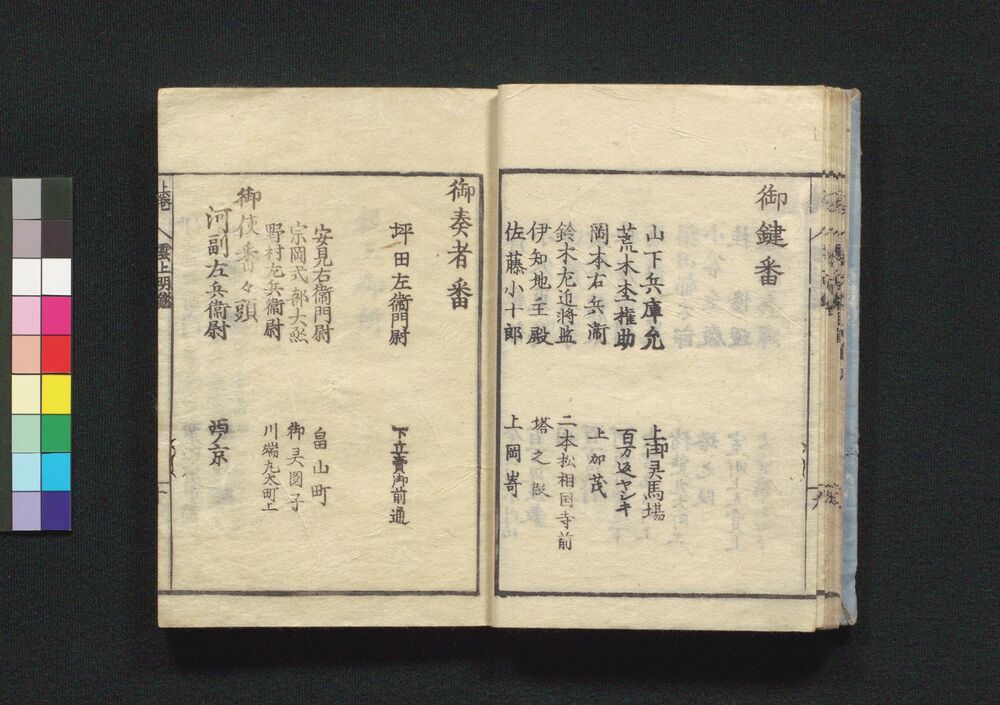 御鍵番
山下兵庫允 上御灵馬場
荒木杢権助 百万返ヤシキ
岡本右兵衛 上加茂
鈴木左近将監 二本松相国寺前
伊知地主殿 塔之段
佐藤小十郎 上岡嵜
御奏者番
坪田左衛門尉 下立賣御前通
安見右衛門尉 畠山町
宗岡式部大烝 御灵図子
野村左兵衛尉 川端丸太町上
御使番々頭
河副左兵衛尉 西ノ京
雲上明鑑